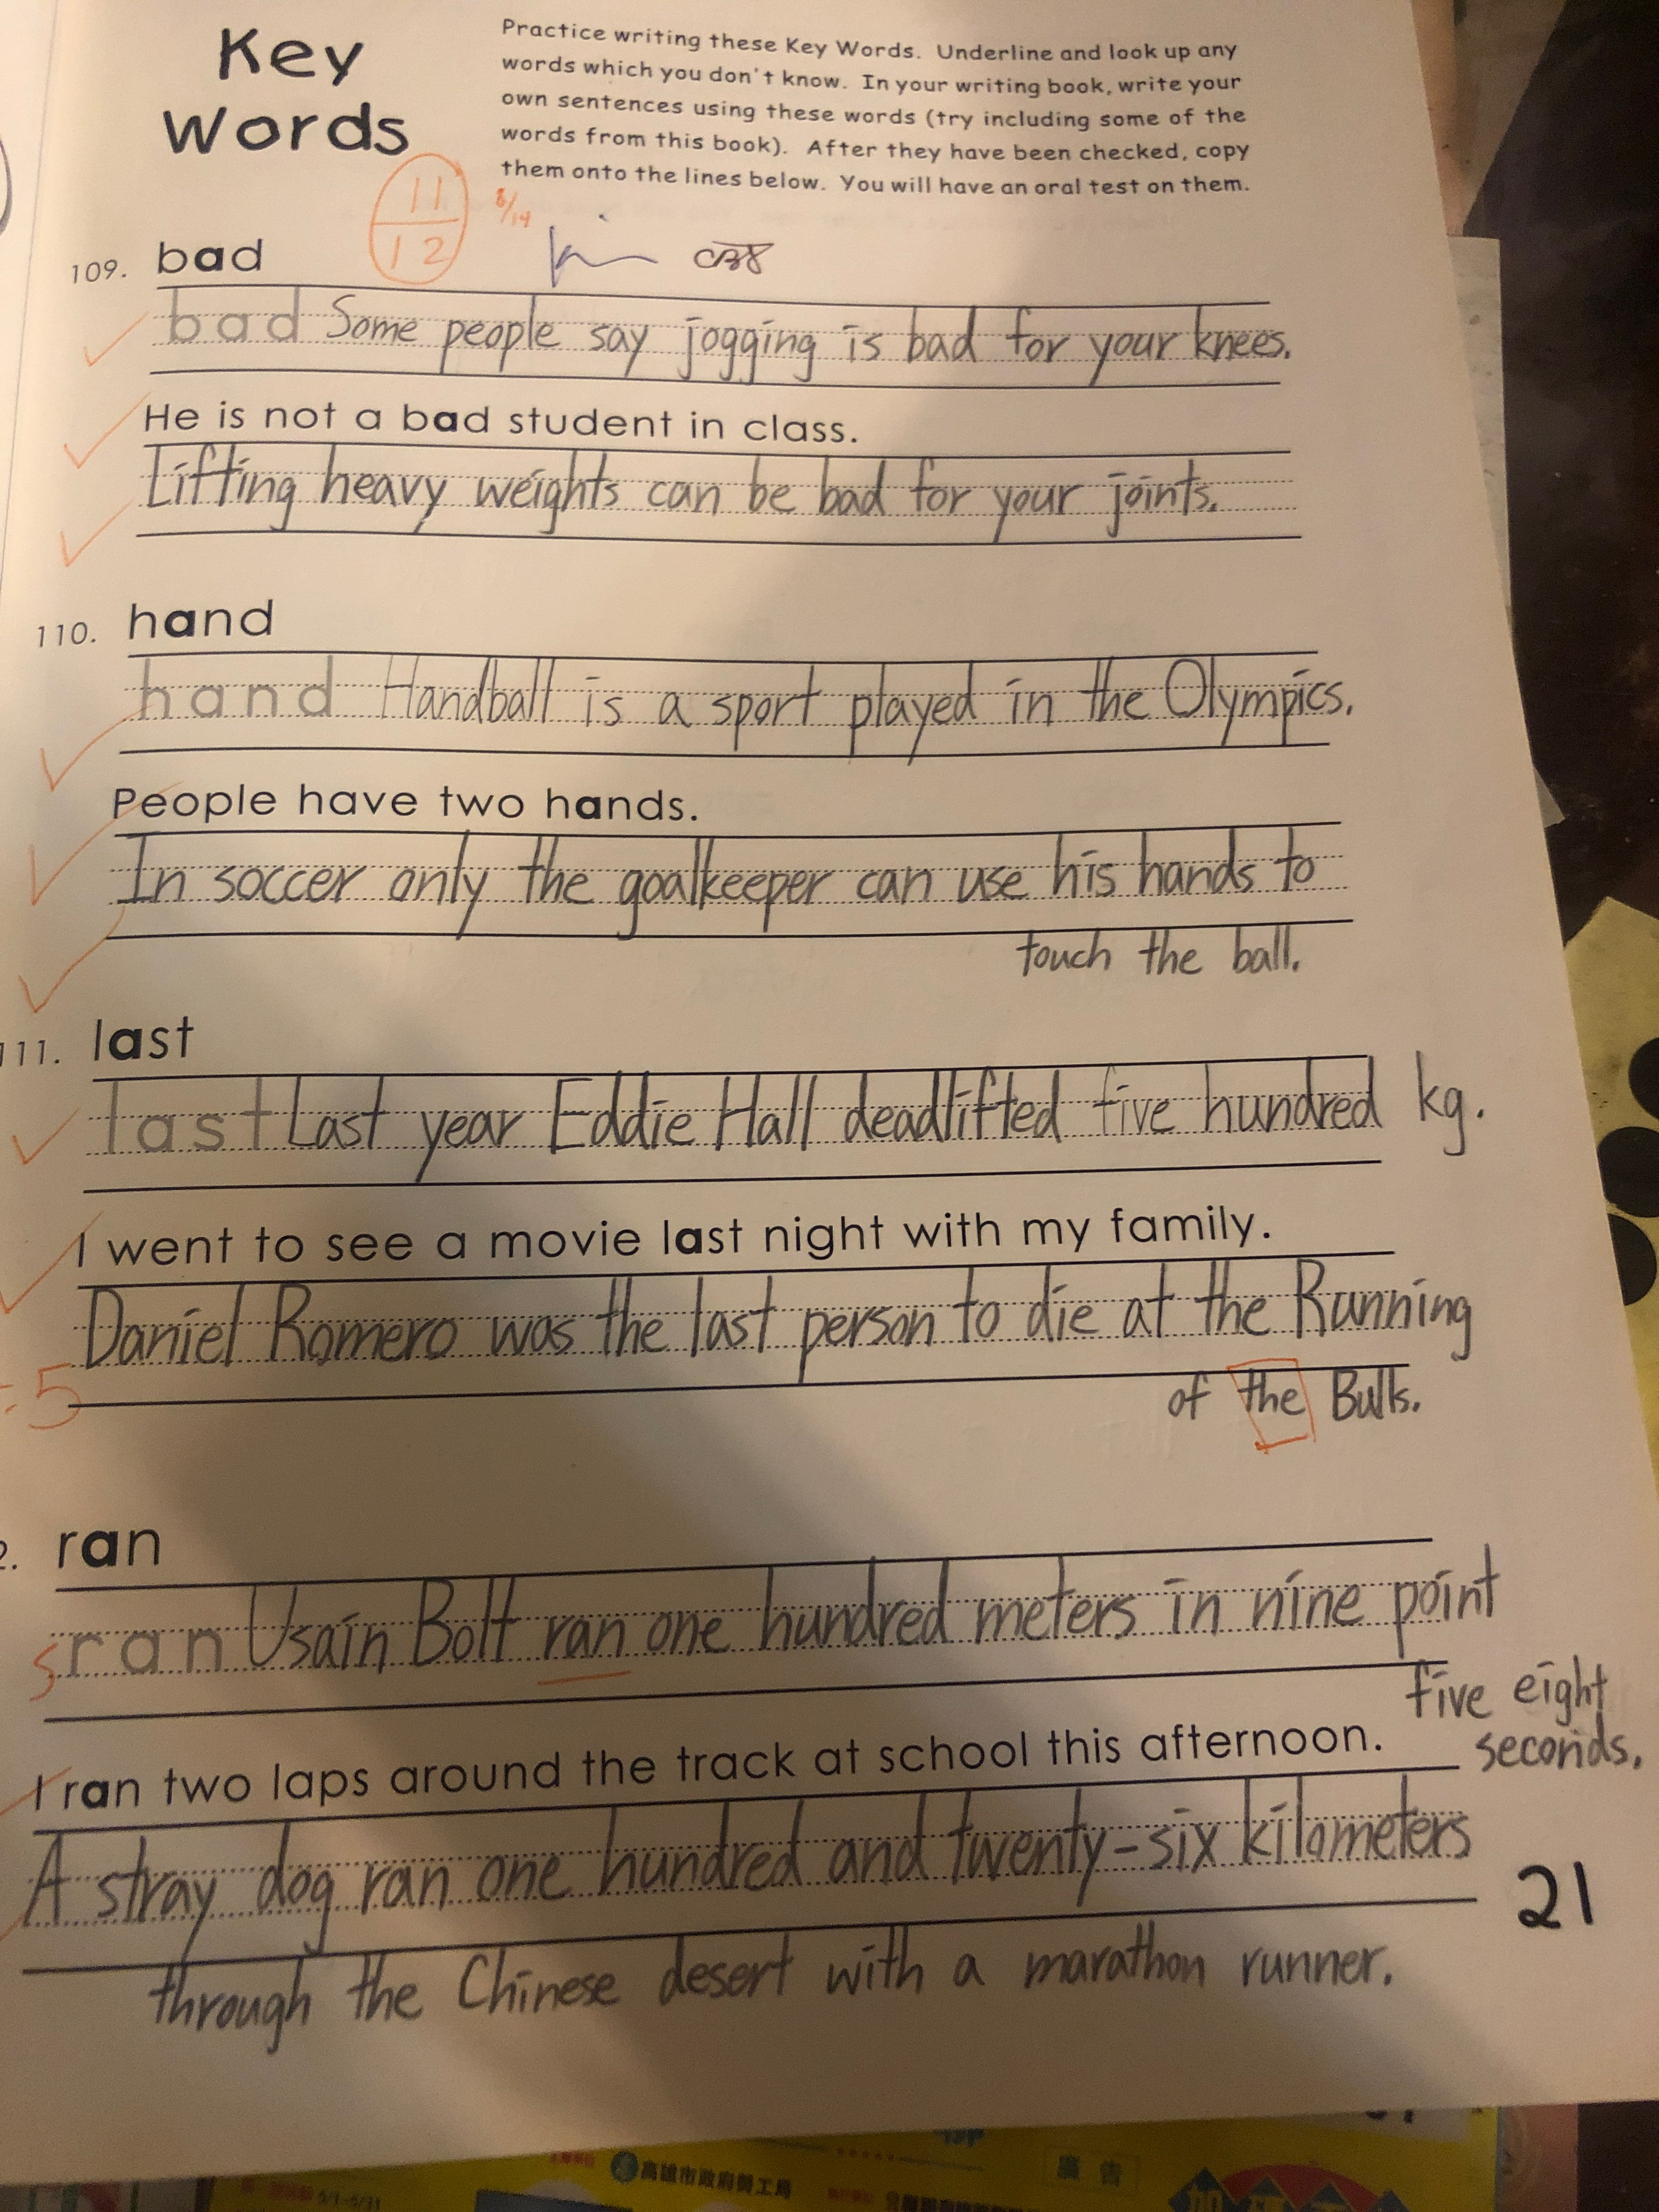 Key
Words
Practice writing these Key Words. Underline and look up any
words which you don't know. In your writing book, write your
own sentences using these words (try including some of the
words from this book). After they have been checked, copy
them onto the lines below. You will have an oral test on them.
11/12
8/14
109. bad
bad Some people say jogging is bad for your knees.
He is not a bad student in class.
Lifting heavy weights can be bad for your joints.
110. hand
hand Handball is a sport played in the Olympics.
People have two hands.
In soccer only the goalkeeper can use his hands to
touch the ball.
111. last
last Last year Eddie Hall deadlifted five hundred kg.
I went to see a movie last night with my family.
Daniel Romero was the last person to die at the Running
-.5
of the Bulls.
2. ran
ran Usain Bolt ran one hundred meters in nine point
five eight
seconds.
I ran two laps around the track at school this afternoon.
A stray dog ran one hundred and twenty-six kilometers
21
through the Chinese desert with a marathon runner.
高雄市政府勞工局
廣告